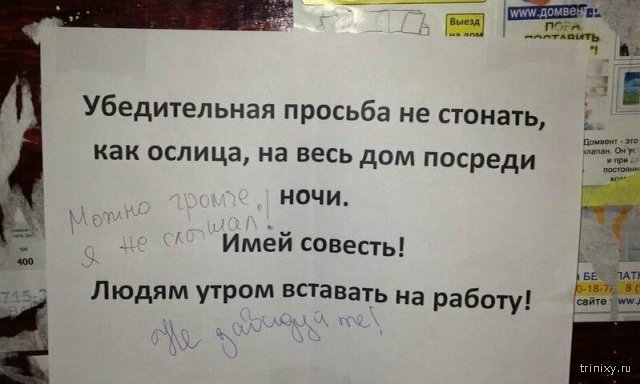 Выезд
на дом
www.домвент.р
ПОРА
ПОСТАВИТЬ
Домвент - это
клапан. Он ус
и при
постоянн
Убедительная просьба не стонать,
как ослица, на весь дом посреди
ночи.
Можно громче!
Я не слышал!
Имей совесть!
Людям утром вставать на работу!
Не завидуйте!
400
715-3
БЕ
ЛАТН
0-18-7
8 (
сайте
www.д
trinixy.ru